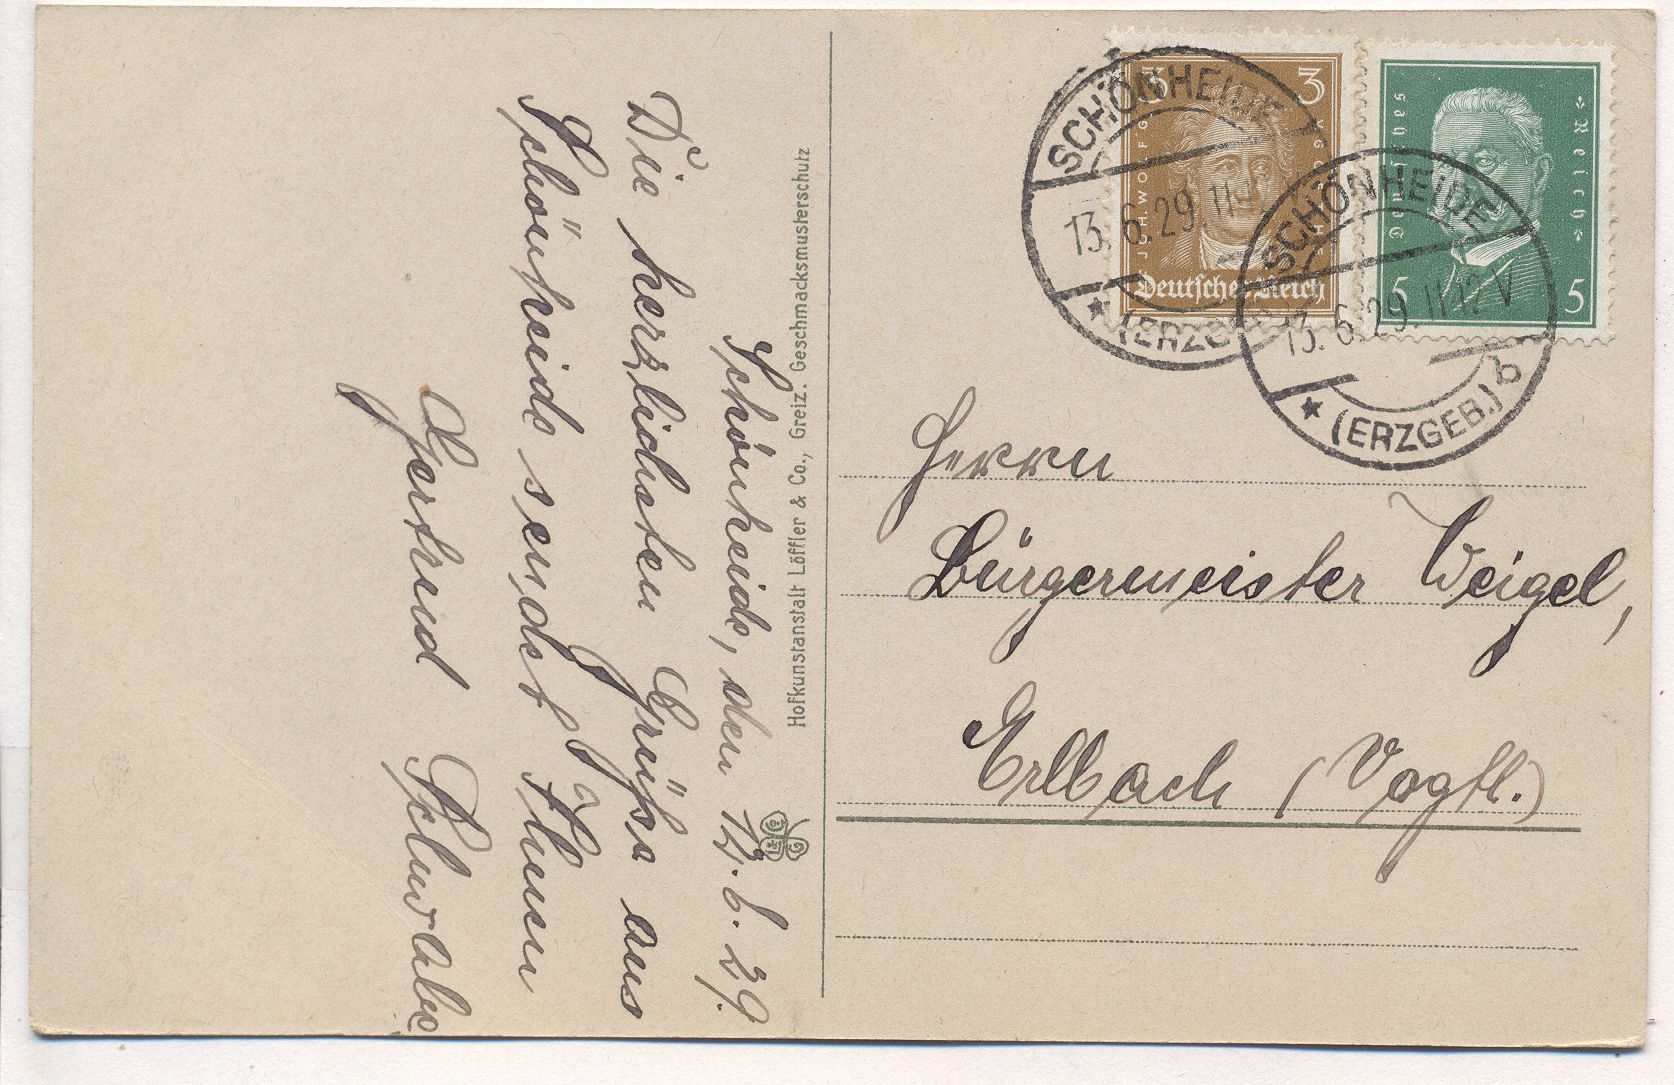 Schönheide, den 12.6.29.
Die herzlichsten Grüße aus
Schönheide sendet Ihnen
Gertrud Schwabe
Hofkunstanstalt Löffler & Co., Greiz. Geschmacksmusterschutz
3 3
JOH. WOLFG. V. GOETHE
Deutsches Reich
Deutsches Reich
5 5
SCHÖNHEIDE
13.6.29. 11-
* (ERZGEB.)
SCHÖNHEIDE
13.6.29. 11-12 V
* (ERZGEB.) b
Herrn
Bürgermeister Weigel,
Erlbach (Vogtl.)